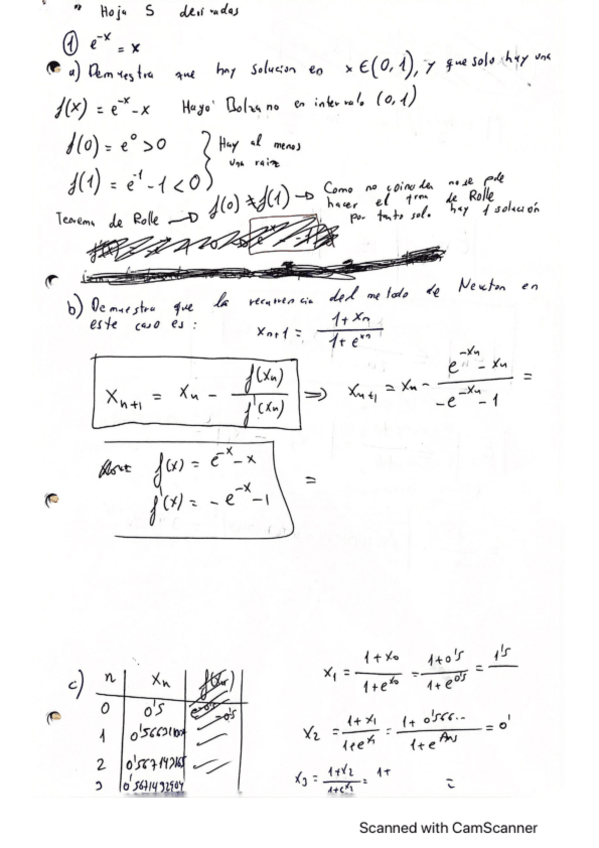 " Hoja 5 derivadas
① e^-x = x
a) Demuestra que hay solucion en x ∈ (0,1), y que solo hay una
f(x) = e^-x - x Hago Bolzano en intervalo (0,1)
f(0) = e^0 > 0 } Hay al menos
una raiz
f(1) = e^-1 - 1 < 0
Teorema de Rolle → f(0) ≠ f(1) → Como no coinciden no se pde
hacer el trma de Rolle
por tanto solo hay 1 solución
b) Demuestra que la recurrencia del metodo de Newton en
este caso es: x_n+1 = (1 + x_n) / (1 + e^xn)
x_n+1 = x_n - f(x_n) / f'(x_n) ⇒ x_n+1 = x_n - (e^-xn - x_n) / (-e^-xn - 1) =
f(x) = e^-x - x
f'(x) = -e^-x - 1
=
c) n | x_n
0 | 0'5
1 | 0'5663110
2 | 0'567143165
3 | 0'5671432904
x_1 = (1 + x_0) / (1 + e^x0) = (1 + 0'5) / (1 + e^0'5) = 1'5
x_2 = (1 + x_1) / (1 + e^x1) = (1 + 0'566..) / (1 + e^Ans) = 0'
x_3 = (1 + x_2) / (1 + e^x2) = 1+
=
Scanned with CamScanner